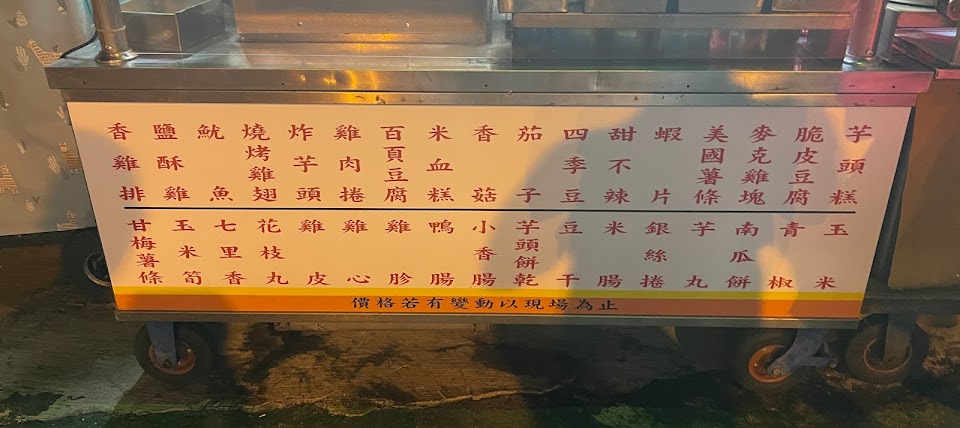 香雞排
鹽酥雞
魷魚
燒烤雞翅
炸芋頭
雞肉捲
百頁豆腐
米血糕
香菇
茄子
四季豆
甜不辣
蝦片
美國薯條
麥克雞塊
脆皮豆腐
芋頭糕
甘梅薯條
玉米筍
七里香
花枝丸
雞皮
雞心
雞胗
鴨腸
小香腸
芋頭餅乾
豆干
米腸
銀絲捲
芋丸
南瓜餅
青椒
玉米
價格若有變動以現場為止